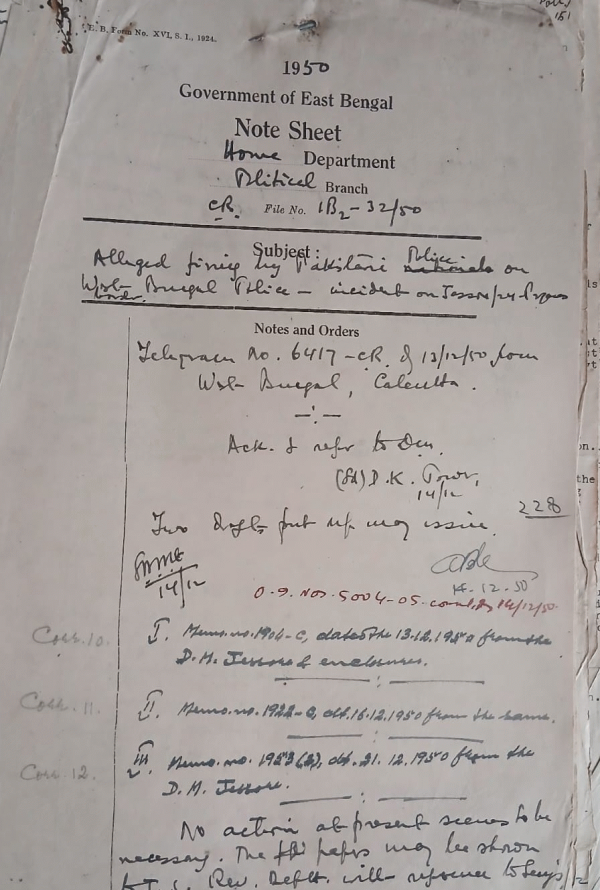 E. B. Form No. XVI, S. I., 1924.
151
1950
Government of East Bengal
Note Sheet
Home Department
Political Branch
CR. File No. 1B2-32/50
Subject :
Alleged firing by Pakistani Police nationals on
West Bengal Police - incident on Jessore/24-Pgns
border.
Notes and Orders
Telegram No. 6417-CR. of 13/12/50 from
West Bengal, Calcutta.
Ack. & refer to Dm.
(Sd) D.K. Power,
14/12
228
Two drafts put up may issue.
14/12
14.12.50
O.g. Nos. 5004-05. 14/12/50.
Corr. 10. I. Memo. no. 1904-C, dated the 13.12.1950 from the
D. M. Jessore & enclosures.
Corr. 11. II. Memo. no. 1922-C, dt. 16.12.1950 from the same.
Corr. 12. III. Memo. no. 1953(2), dt. 21.12.1950 from the
D. M. Jessore.
No action at present seems to be
necessary. The papers may be shown
to Rev. Deptt. with reference to